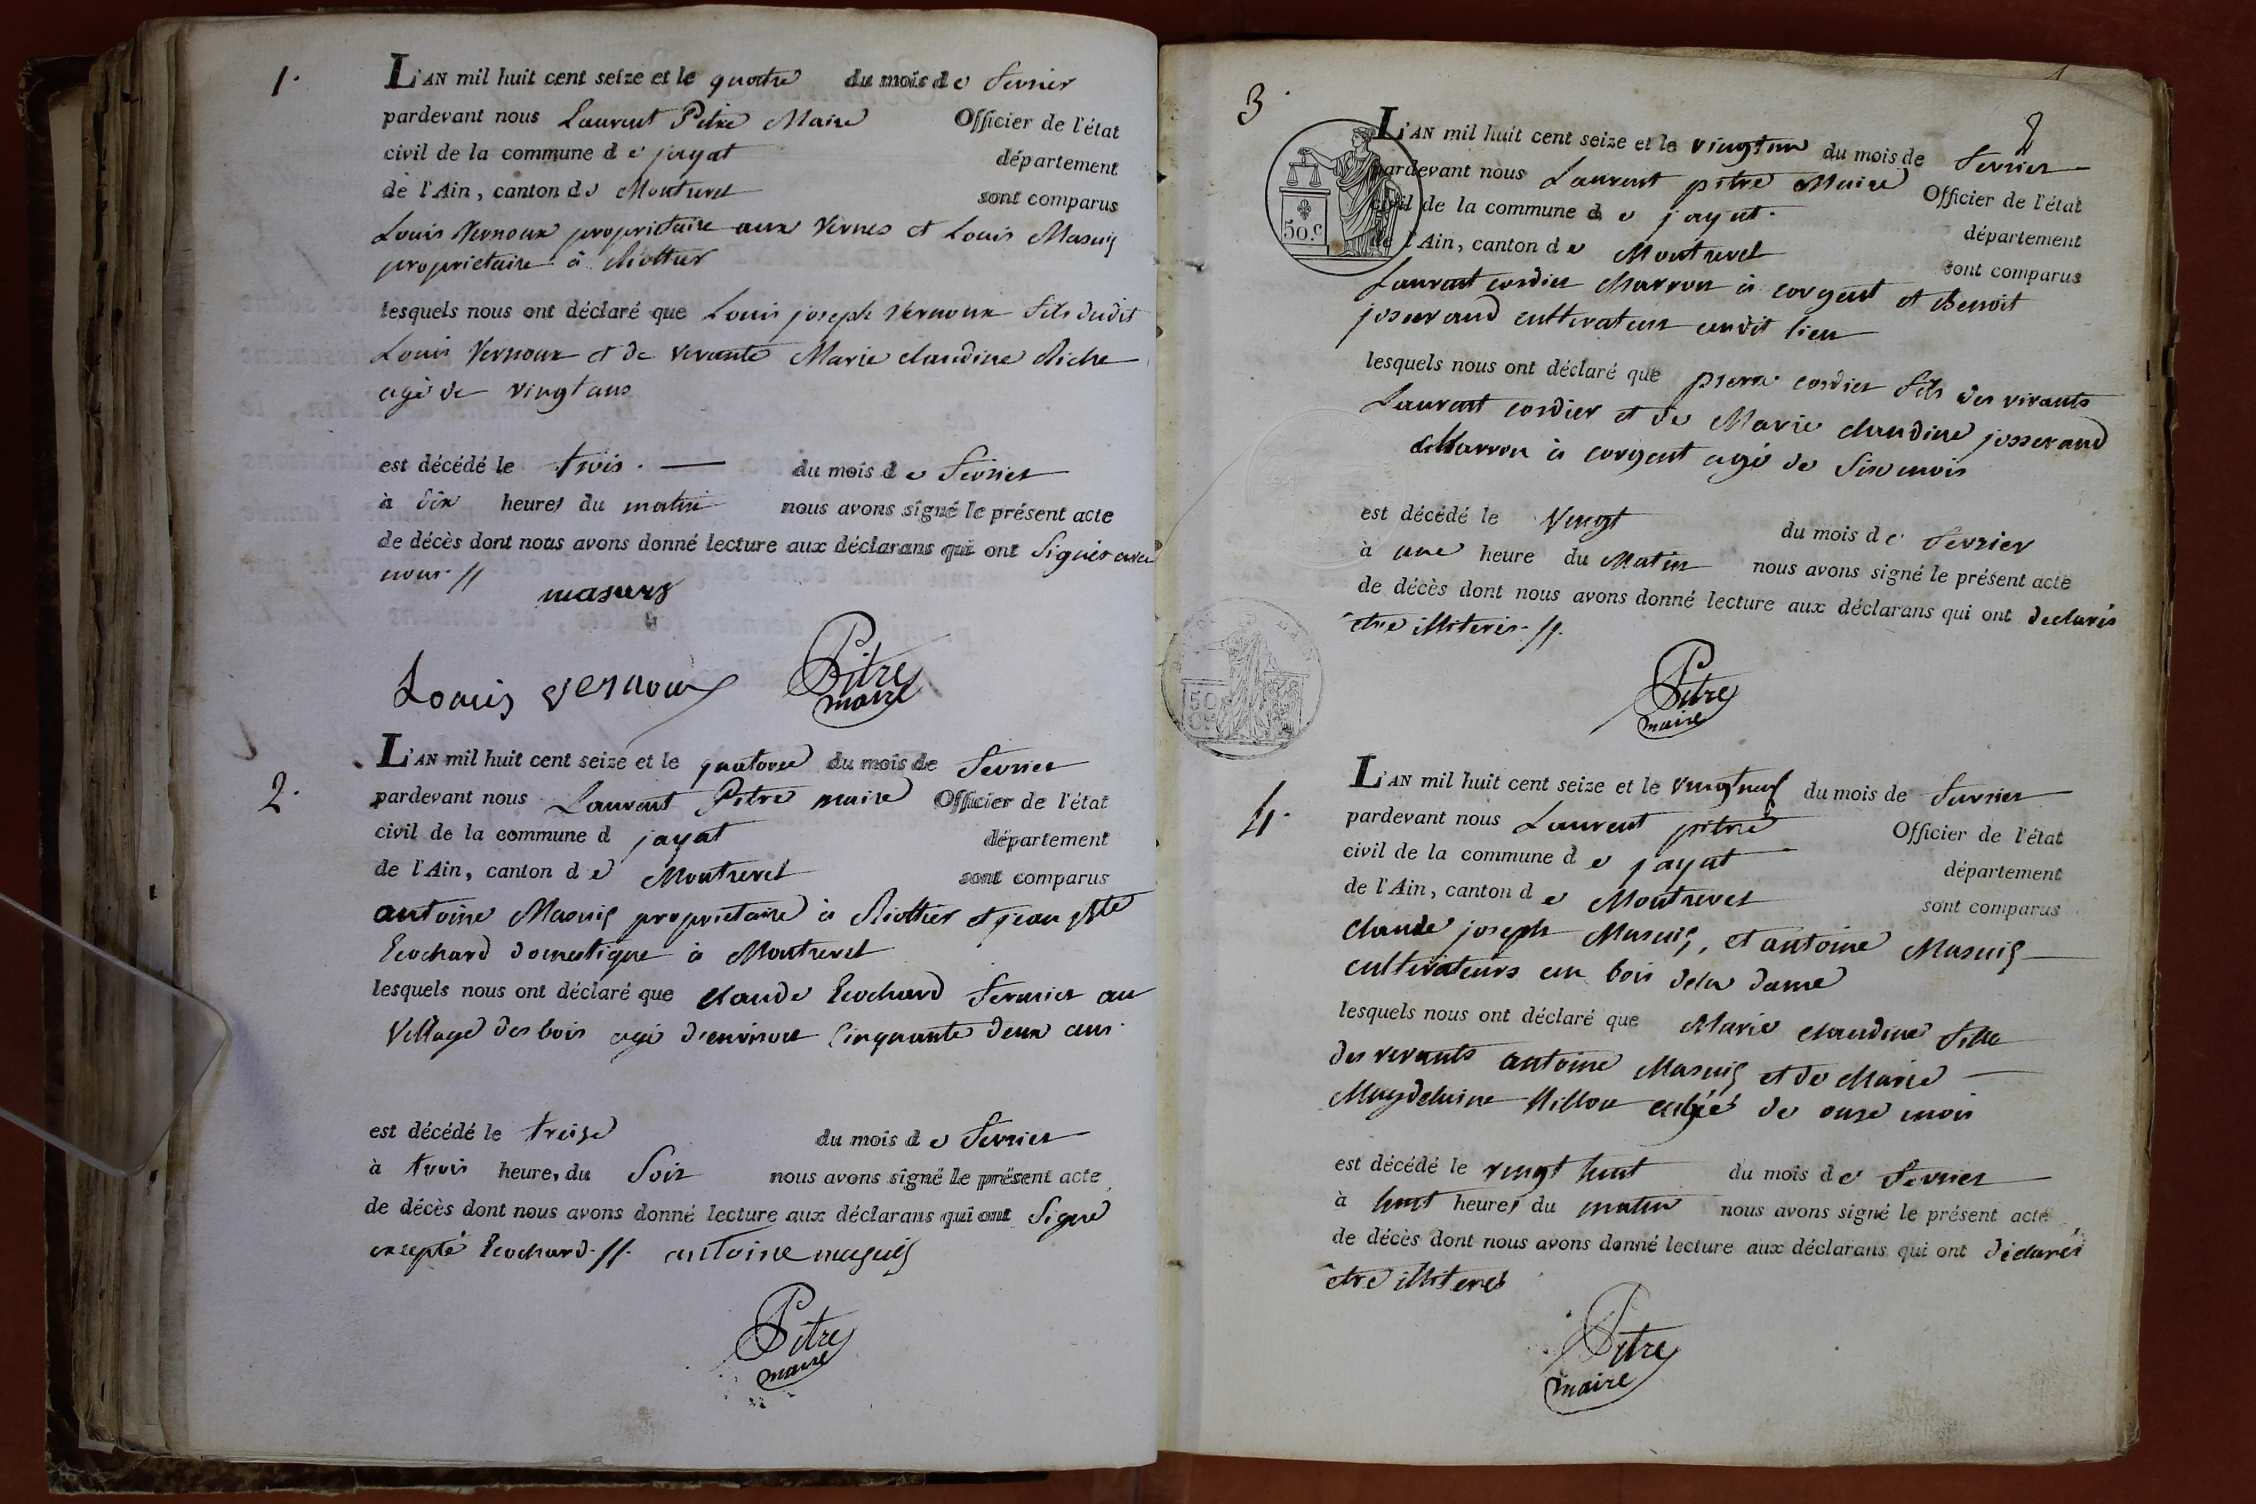 1.
L'AN mil huit cent seize et le quatre du mois de fevrier
pardevant nous Laurent Pitre Maire Officier de l'état
civil de la commune de jayat département
de l'Ain, canton de Montrevel sont comparus
Louis Vernoux proprietaire aux Vernes et Louis Masuy
proprietaire à Riottier
lesquels nous ont déclaré que Louis joseph Vernoux fils dudit
Louis Vernoux et de vivante Marie claudine Riche
agé de vingt ans
est décédé le trois. du mois de fevrier
à dix heures du matin nous avons signé le présent acte
de décès dont nous avons donné lecture aux déclarans qui ont signés avec
nous. //
masuy
Louis vernoux Pitre
maire
2.
L'AN mil huit cent seize et le quatorze du mois de fevrier
pardevant nous Laurent Pitre maire Officier de l'état
civil de la commune d jayat département
de l'Ain, canton de Montrevel sont comparus
antoine Masuy proprietaire à Riottier et jean Bte
Ecochard domestique à Montrevel
lesquels nous ont déclaré que claude Ecochard fermier au
Village des bois agé d'environ Cinquante deux ans.
est décédé le treize du mois de fevrier
à trois heures du soir nous avons signé le présent acte
de décès dont nous avons donné lecture aux déclarans qui ont signé
excepté Ecochard. //. antoine masuy
Pitre
maire
3.
L'AN mil huit cent seize et le vingt un du mois de fevrier
pardevant nous Laurent pitre Maire Officier de l'état
civil de la commune de jayat. département
de l'Ain, canton de Montrevel sont comparus
50.c
Laurent cordier Marron à corgent et Benoit
josserand cultivateur audit lieu
lesquels nous ont déclaré que pierre cordier fils des vivants
Laurent cordier et de Marie claudine josserand
Marron à corgent agé de six mois
est décédé le vingt du mois de fevrier
à une heure du Matin nous avons signé le présent acte
de décès dont nous avons donné lecture aux déclarans qui ont declarés
être illiterés. //.
50
Pitre
maire
4.
L'AN mil huit cent seize et le vingt neuf du mois de fevrier
pardevant nous Laurent pitre Officier de l'état
civil de la commune de jayat département
de l'Ain, canton de Montrevel sont comparus
claude joseph Masuy, et antoine Masuy
cultivateurs au bois de la dame
lesquels nous ont déclaré que Marie claudine fille
des vivants antoine Masuy et de Marie
Magdelaine Millon agée de onze mois
est décédé le vingt huit du mois de fevrier
à huit heures du matin nous avons signé le présent acte
de décès dont nous avons donné lecture aux déclarans qui ont déclarés
etre illiterés
Pitre
maire